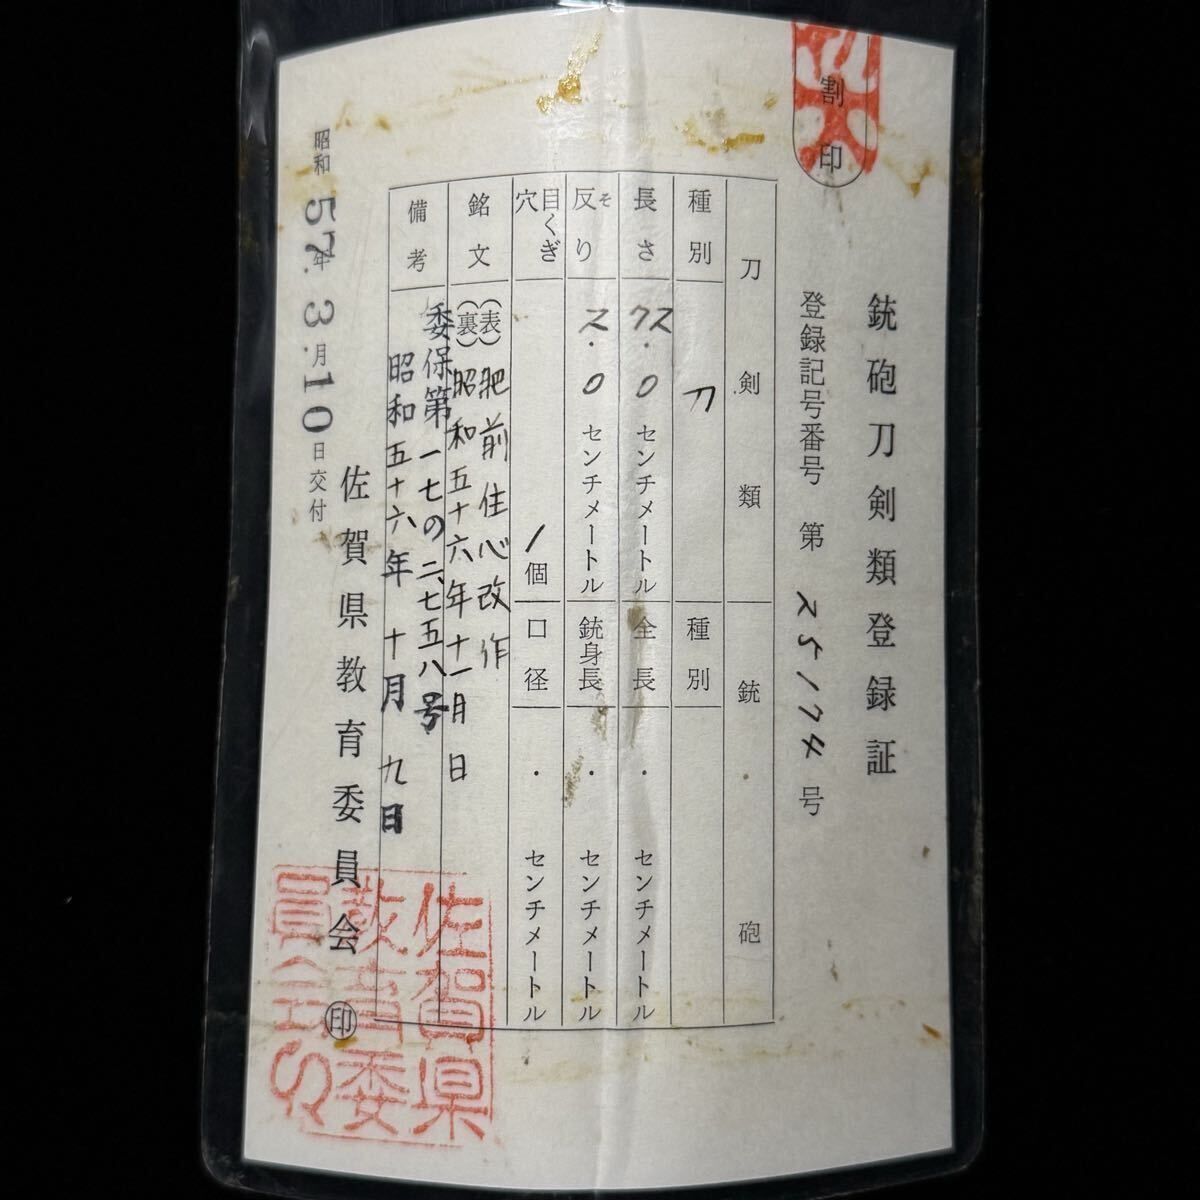 割印
銃砲刀剣類登録証
登録記号番号 第 25174 号
刀剣類 銃砲
種別 刀 種別
長さ 72.0 センチメートル 全長 . センチメートル
反り そ 2.0 センチメートル 銃身長 . センチメートル
目くぎ穴 1個 口径 . センチメートル
銘文 (表) 肥前住心改作
(裏) 昭和五十六年十一月 日
備考 委保第一七の二七五八号
昭和五十六年 十月 九日
昭和57年3月10日交付
佐賀県教育委員会 印
佐賀県
教育委
員会